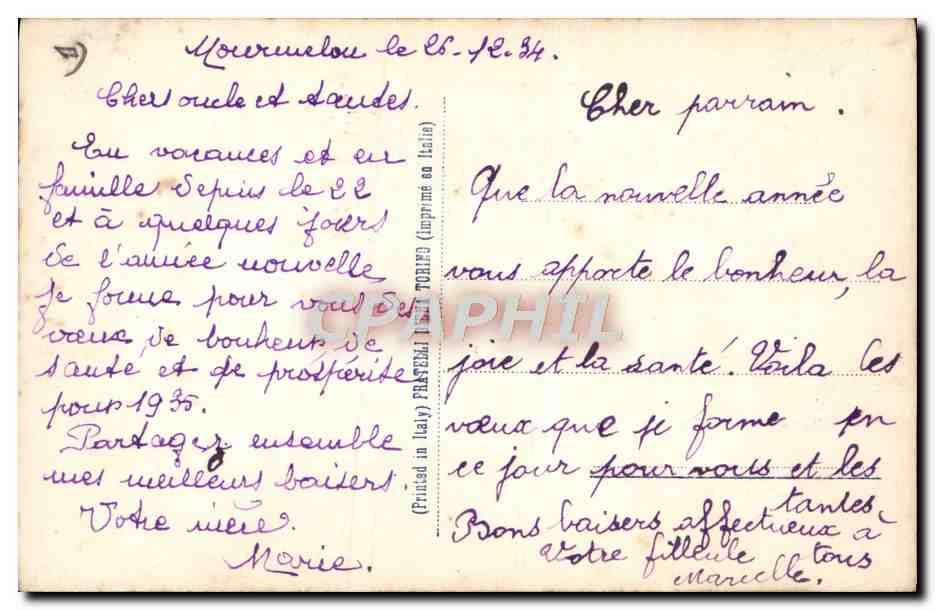 Mourmelon le 26-12-34.
Chers oncle et tantes.
En vacances et en
famille depuis le 22
et à quelques jours
de l'année nouvelle
je forme pour vous des
vœux de bonheur de
santé et de prospérité
pour 1935.
Partagez ensemble
mes meilleurs baisers.
Votre nièce.
Marie.
(Printed in Italy) FRATELLI TORINO (Imprimé en Italie)
CPAPHIL
Cher parrain.
Que la nouvelle année
vous apporte le bonheur, la
joie et la santé. Voila les
vœux que je forme en
ce jour pour vous et les
tantes.
Bons baisers affectueux à
tous
Votre filleule
Marcelle.